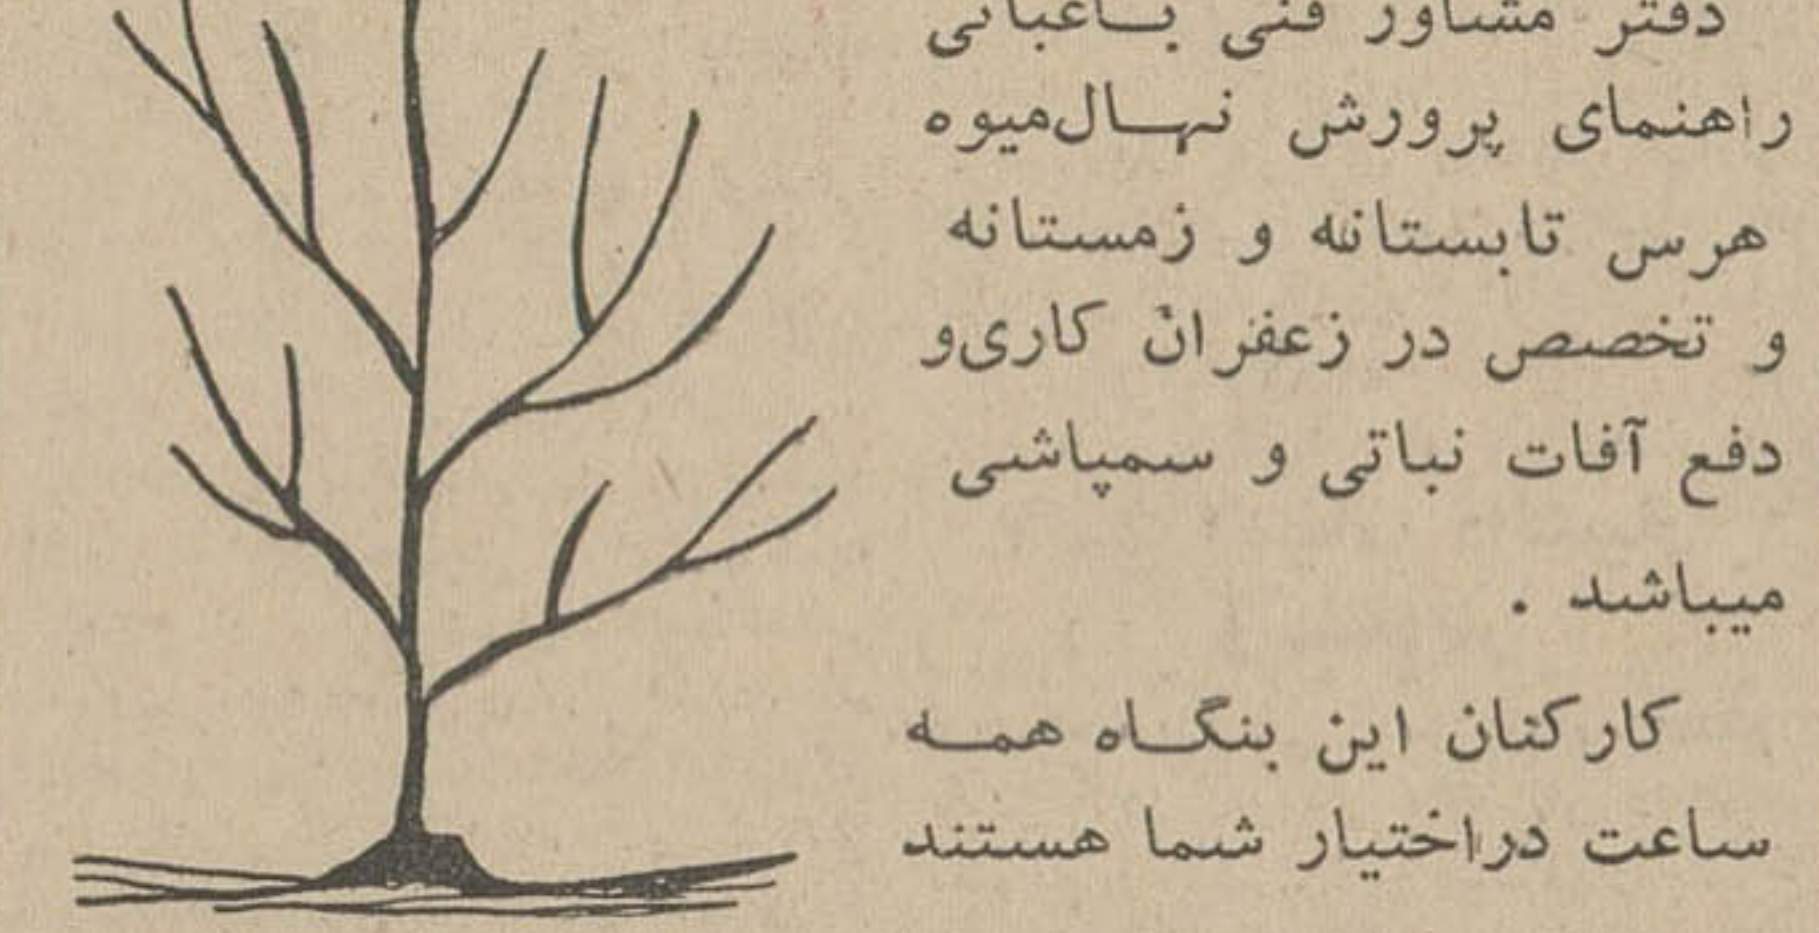 دفتر مشاور فنی باغبانی
راهنمای پرورش نهال‌میوه
هرس تابستانه و زمستانه
و تخصص در زعفران کاری‌و
دفع آفات نباتی و سمپاشی
میباشد .
کارکنان این بنگاه همه
ساعت دراختیار شما هستند